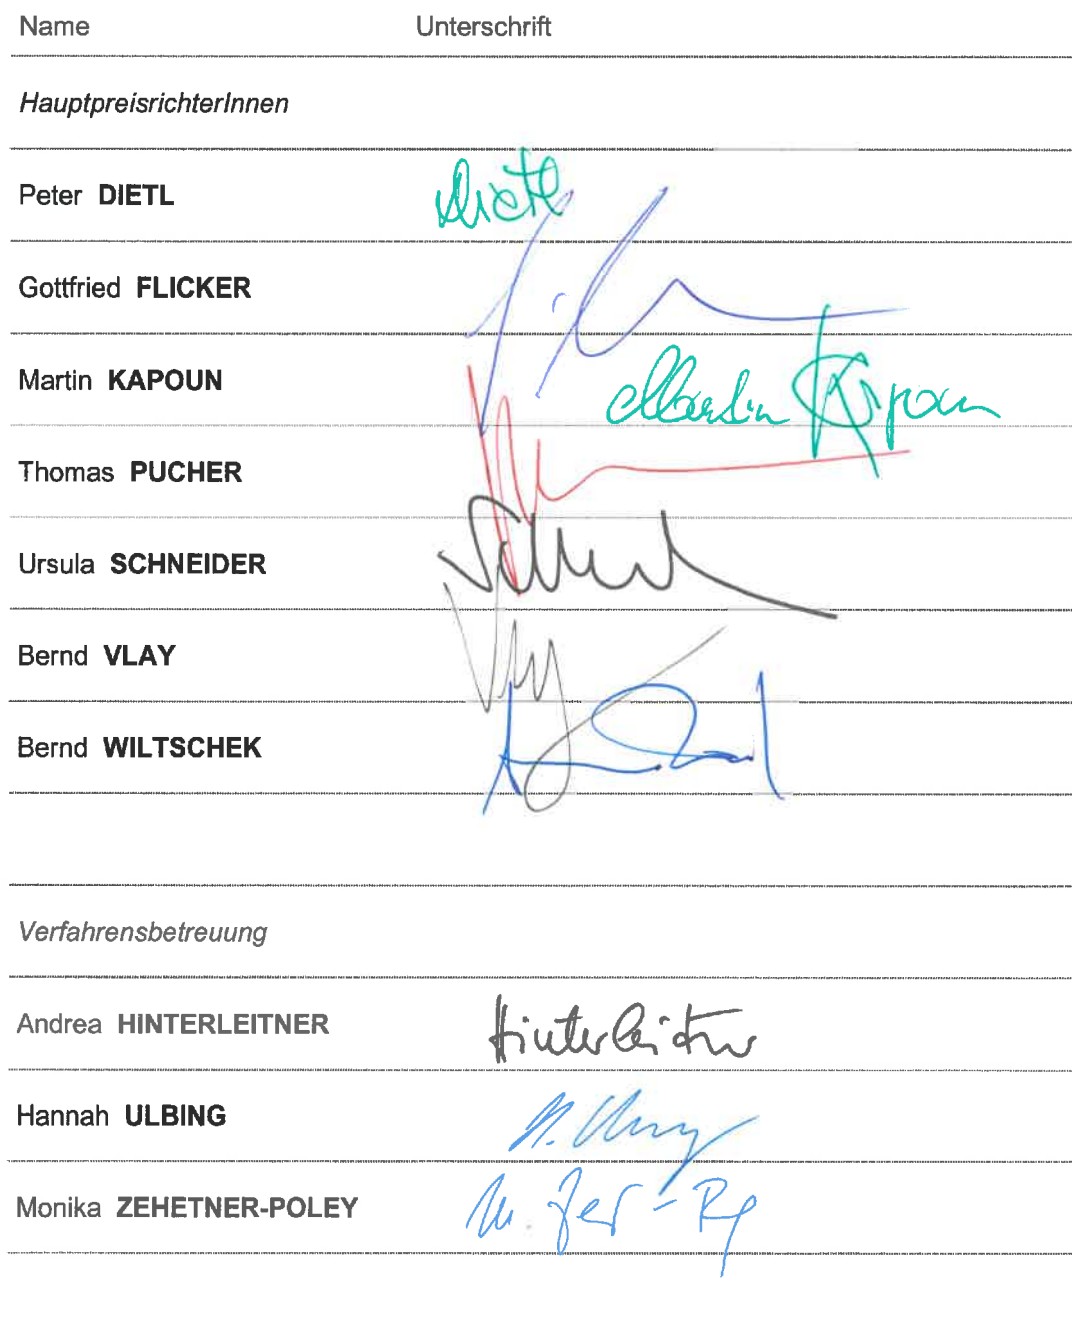 Name Unterschrift
HauptpreisrichterInnen
Peter DIETL Dietl
Gottfried FLICKER
Martin KAPOUN Martin Kapoun
Thomas PUCHER
Ursula SCHNEIDER
Bernd VLAY
Bernd WILTSCHEK
Verfahrensbetreuung
Andrea HINTERLEITNER Hinterleitner
Hannah ULBING
Monika ZEHETNER-POLEY